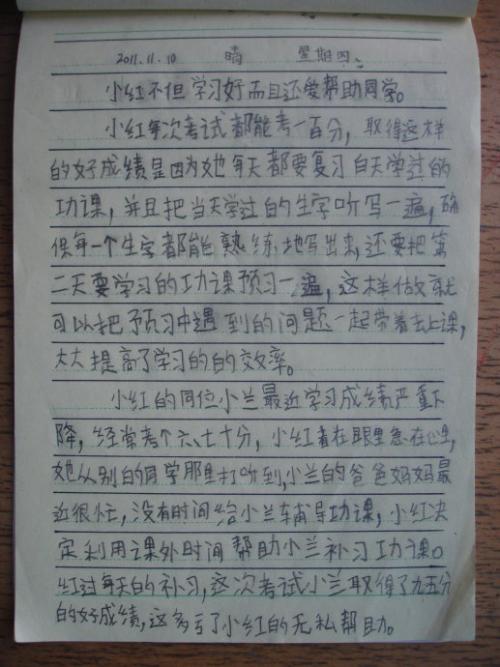 2011.11.10 晴 星期四
小红不但学习好而且还爱帮助同学。
小红每次考试都能考一百分，取得这样
的好成绩是因为她每天都要复习白天学过的
功课，并且把当天学过的生字听写一遍，确
保每一个生字都能熟练地写出来，还要把第
二天要学习的功课预习一遍，这样做就
可以把预习中遇到的问题一起带着去上课，
大大提高了学习的的效率。
小红的同位小兰最近学习成绩严重下
降，经常考个六、七十分，小红看在眼里急在心里，
她从别的同学那里打听到，小兰的爸爸妈妈最
近很忙，没有时间给小兰辅导功课，小红决
定利用课外时间帮助小兰补习功课。
红过每天的补习，这次考试小兰取得了九五分
的好成绩，这多亏了小红的无私帮助。